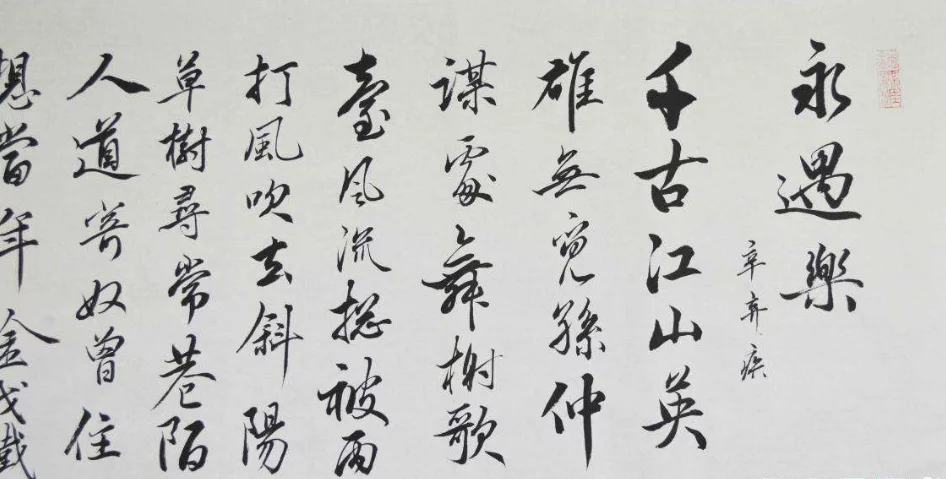 永遇樂
辛弃疾
千古江山英
雄無覓孫仲
謀處舞榭歌
臺風流捴被雨
打風吹去斜陽
草樹尋常巷陌
人道寄奴曾住
想當年金戈鐵